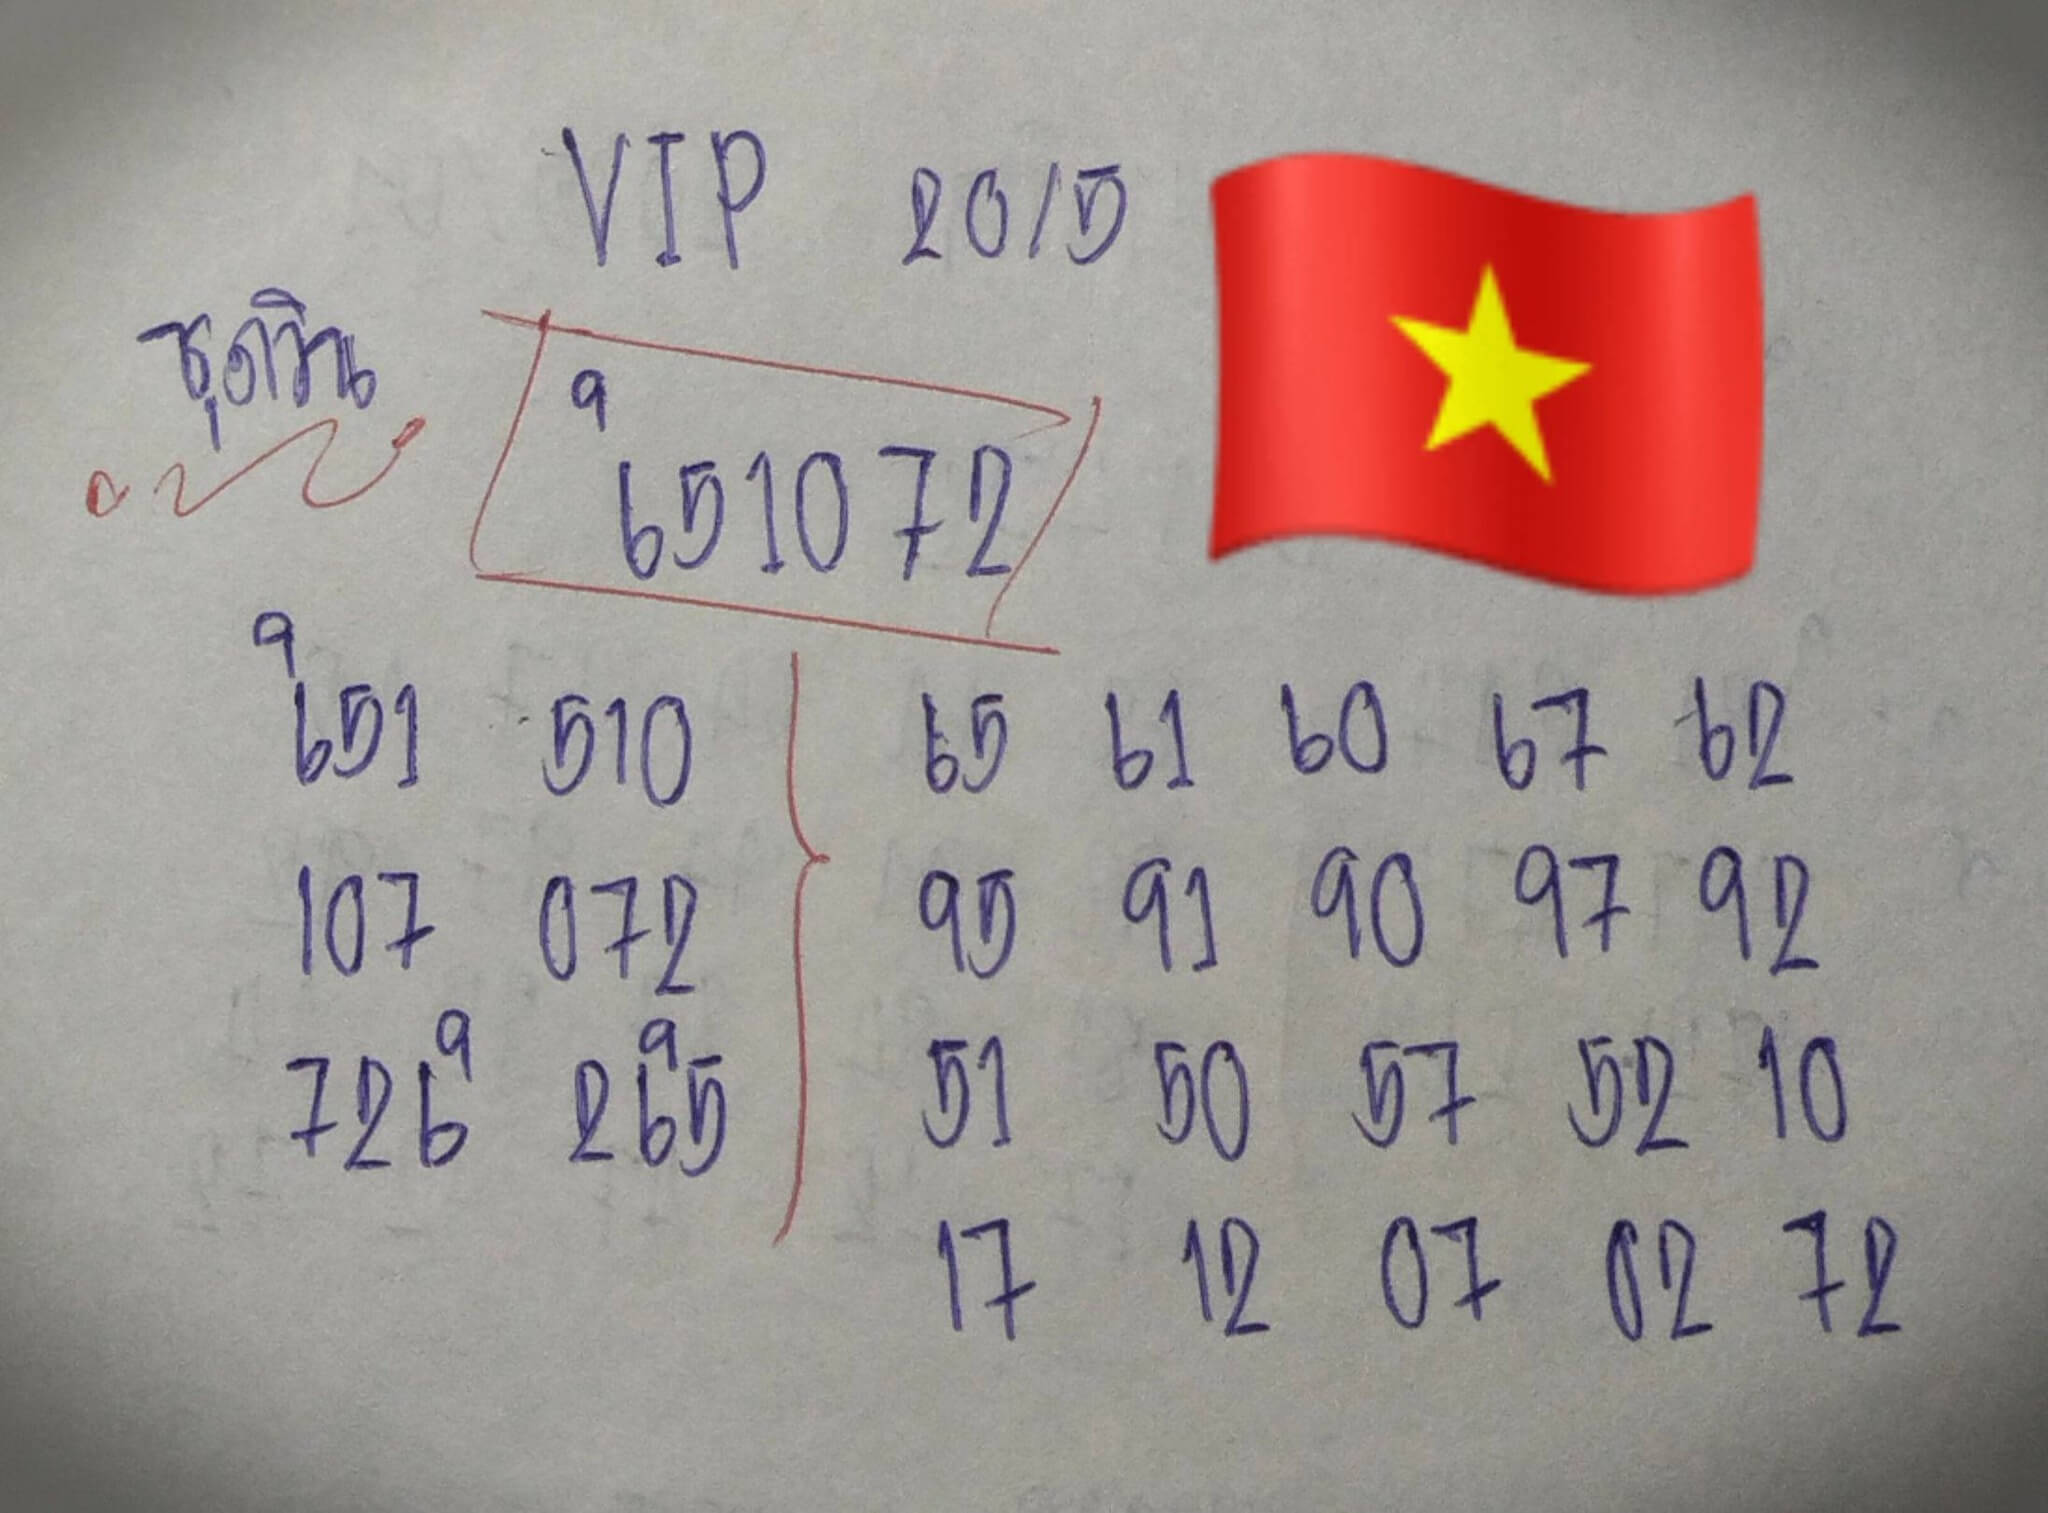 VIP 20/5
ชุดวิน
9
651072
9
651 510
107 072
9 9
726 265
65 61 60 67 62
95 91 90 97 92
51 50 57 52 10
17 12 07 02 72